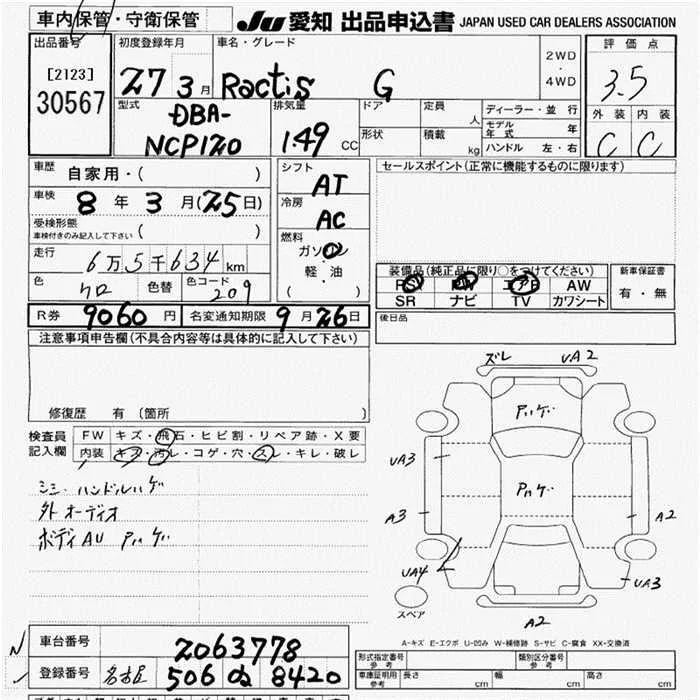 車内保管・守衛保管
JU 愛知 出品申込書 JAPAN USED CAR DEALERS ASSOCIATION
出品番号
[2123]
30567
初度登録年月
27 3月
車名・グレード
Ractis G
2WD
・
4WD
評価点
3.5
外装 内装
C C
型式
DBA-
NCP120
排気量
1.49 CC
ドア
定員
人
形状
積載
kg
ディーラー・並行
モデル年式 年
ハンドル 左・右
車歴
自家用・( )
車検
8年3月(25日)
受検形態
車検付きのみ記入して下さい ( )
走行
6万5千634km
色
クロ
色替
色コード
209
シフト
AT
冷房
AC
燃料
ガソリン
軽・油
( )
セールスポイント(正常に機能するものに限ります)
装備品(純正品に限り○をつけてください)
PS PW エアB AW
SR ナビ TV カワシート
新車保証書
有・無
R券 9060円
名変通知期限 9月26日
後日品
注意事項申告欄(不具合内容等は具体的に記入して下さい)
修復歴 有 (箇所 )
検査員
記入欄
FW キズ・飛石・ヒビ割・リペア跡・X要
内装 キズ・汚レ・コゲ・穴・スレ・キレ・破レ
シミ・ハンドルハゲ
外オーディオ
ボディAU
ズレ UA2
UA3
A3
A2
UA4
UA3
A2
スペア
A-キズ E-エクボ U-凹み W-補修跡 S-サビ C-腐食 XX-交換済
車台番号
2063778
登録番号
名古屋 506 8420
形式指定番号
参考
類別区分番号
参考
車庫証明用
参考
長さ cm 幅 cm 高さ cm